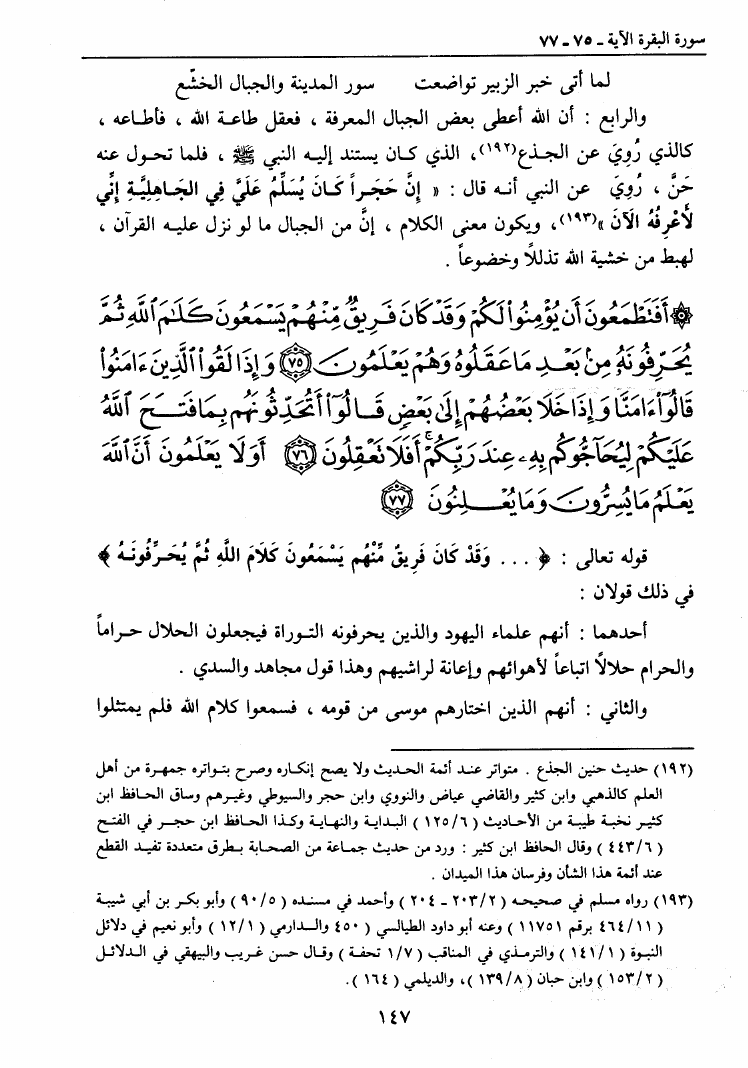 سورة البقرة الآية ـ ٧٥ ـ ٧٧
لما أتى خبر الزبير تواضعت سور المدينة والجبال الخشّع
والرابع : أن الله أعطى بعض الجبال المعرفة ، فعقل طاعـة الله ، فـأطاعه ،
كالذي رُوِيَ عن الجـذع(١٩٢)، الذي كـان يستند إليـه النبي ﷺ ، فلما تحـول عنه
حَنَّ ، رُوِيَ عن النبي أنـه قال : « إِنَّ حَجَـراً كَـانَ يُسَلِّمُ عَلَيَّ فِي الجَـاهِليَّـةِ إِنِّي
لأَعْرِفُهُ الآنَ »(١٩٣)، ويكون معنى الكلام ، إنَّ من الجبال ما لو نزل عليـه القرآن ،
لهبط من خشية الله تذللاً وخضوعاً .
۞ أَفَتَطْمَعُونَ أَن يُؤْمِنُوا۟ لَكُمْ وَقَدْ كَانَ فَرِيقٌ مِّنْهُمْ يَسْمَعُونَ كَلَـٰمَ ٱللَّهِ ثُمَّ
يُحَرِّفُونَهُۥ مِنۢ بَعْدِ مَا عَقَلُوهُ وَهُمْ يَعْلَمُونَ ٧٥ وَإِذَا لَقُوا۟ ٱلَّذِينَ ءَامَنُوا۟
قَالُوٓا۟ ءَامَنَّا وَإِذَا خَلَا بَعْضُهُمْ إِلَىٰ بَعْضٍ قَالُوٓا۟ أَتُحَدِّثُونَهُم بِمَا فَتَحَ ٱللَّهُ
عَلَيْكُمْ لِيُحَآجُّوكُم بِهِۦ عِندَ رَبِّكُمْ ۚ أَفَلَا تَعْقِلُونَ ٧٦ أَوَلَا يَعْلَمُونَ أَنَّ ٱللَّهَ
يَعْلَمُ مَا يُسِرُّونَ وَمَا يُعْلِنُونَ ٧٧
قوله تعالى : ﴿ . . . وَقَدْ كَانَ فَرِيقٌ مِّنْهُم يَسْمَعُونَ كَلَامَ اللَّهِ ثُمَّ يُحَـرِّفُونَـهُ ﴾
في ذلك قولان :
أحدهما : أنهم علماء اليهود والذين يحرفونه التـوراة فيجعلون الحلال حـراماً
والحرام حلالاً اتباعاً لأهوائهم وإعانة لراشيهم وهذا قول مجاهد والسدي .
والثاني : أنهم الذين اختارهم موسى من قومه ، فسمعوا كلام الله فلم يمتثلوا
(١٩٢) حديث حنين الجذع . متواتر عنـد أئمة الحـديث ولا يصح إنكـاره وصرح بتـواتره جمهـرة من أهل
العلم كالذهبي وابن كثير والقاضي عياض والنووي وابن حجر والسيوطي وغيـرهم وساق الحـافظ ابن
كثيـر نخبة طيبـة من الأحاديث ( ١٢٥/٦ ) البـداية والنهـاية وكـذا الحـافظ ابن حجـر في الفتح
( ٤٤٣/٦ ) وقال الحافظ ابن كثير : ورد من حديث جماعة من الصحابة بطرق متعددة تفيـد القطع
عند أئمة هذا الشأن وفرسان هذا الميدان .
(١٩٣) رواه مسلم في صحيحـه ( ٢٠٣/٢ ـ ٢٠٤ ) وأحمد في مسنـده ( ٩٠/٥ ) وأبو بكـر بن أبي شيبـة
( ٤٦٤/١١ برقم ١١٧٥١ ) وعنه أبو داود الطيالسي ( ٤٥٠ والـدارمي ) ( ١٢/١ ) وأبو نعيم في دلائل
النبـوة ( ١٤١/١ ) والترمـذي في المناقب ( ١/٧ تحفـة ) وقـال حسن غـريب والبيهقي في الـدلائـل
( ١٥٣/٢ ) وابن حبان ( ١٣٩/٨ )، والديلمي ( ١٦٤ ).
١٤٧